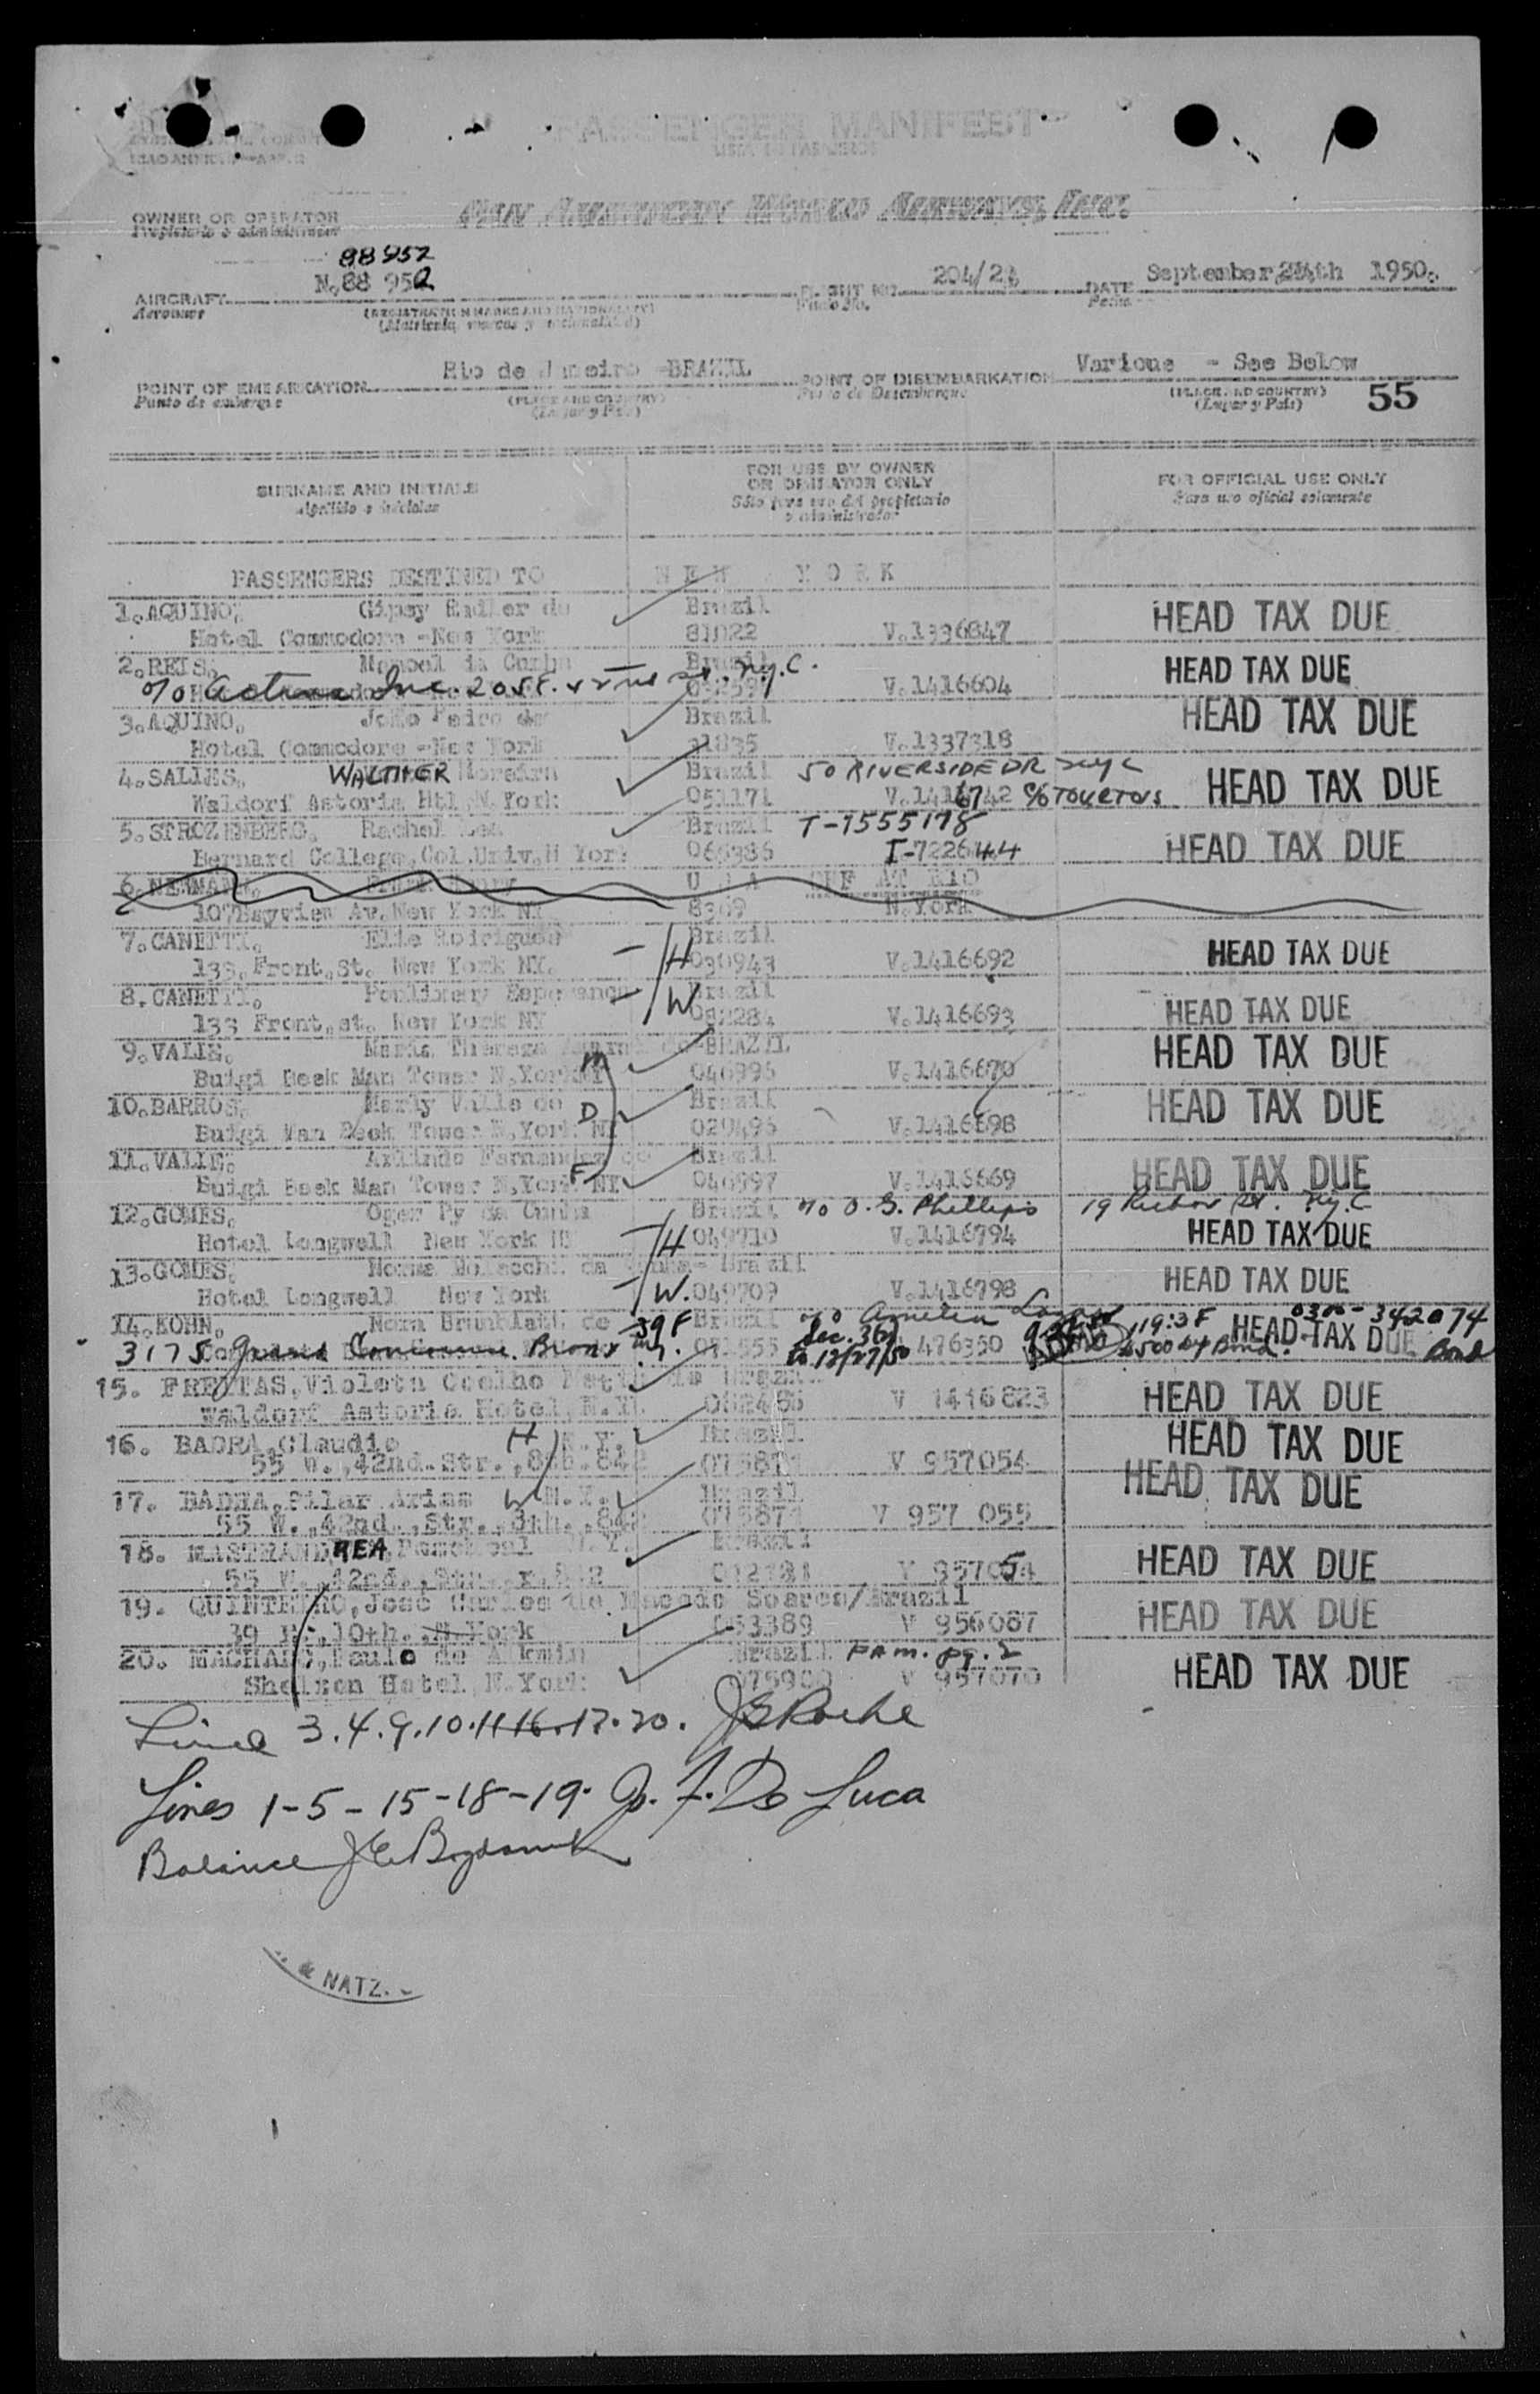 PASSENGER MANIFEST
LISTA DE PASAJEROS
OWNER OR OPERATOR
Propietario o administrador
PAN AMERICAN WORLD AIRWAYS, INC.
88952
AIRCRAFT N.88 952
Aeronave
(REGISTRATION MARKS AND NATIONALITY)
(Matricula, marcas y nacionalidad)
FLIGHT NO. 204/24
DATE September, 24th 1950.
Fecha
POINT OF EMBARKATION Rio de Janeiro -BRAZIL
Punto de embarque
(PLACE AND COUNTRY)
(Lugar y Pais)
POINT OF DISEMBARKATION Various - See Below
Punto de Desembarque
(PLACE AND COUNTRY)
(Lugar y Pais)
55
SURNAME AND INITIALS
Apellido e iniciales
FOR USE BY OWNER OR OPERATOR ONLY
Sólo para uso del propietario o administrador
FOR OFFICIAL USE ONLY
Para uso oficial solamente
PASSENGERS DESTINED TO NEW YORK
1. AQUINO, Gipsy Radler de Brazil
Hotel Commodore -New York 81022 V.1336847 HEAD TAX DUE
2. REIS, Manoel da Cunha Brazil HEAD TAX DUE
V.1416604
3. AQUINO, João Pedro de Brazil HEAD TAX DUE
Hotel Commodore -New York 81835 V.1337318
4. SALLES, WALTHER Moreira Brazil 50 RIVERSIDE DR NYC
Waldorf Astoria Htl, N. York 051171 V.1416742 HEAD TAX DUE
5. STROZENBERG, Rachel Brazil T-1555178
Bernard College, Col.Univ. N York 066386 I-722644 HEAD TAX DUE
6. NEWMANN, U S A OFF AT RIO
107 Bayview Av. New York NY 8369 N.York
7. CANETTI, Elie Rodrigues - H Brazil
133, Front, St. New York NY. 030943 V.1416692 HEAD TAX DUE
8. CANETTI, Esperanca - W Brazil
133 Front, st. New York NY V.1416693 HEAD TAX DUE
9. VALLE, Maria Thereza BRAZIL
Buigi Beek Man Tower N.York M 046996 V.1416670 HEAD TAX DUE
10. BARROS, Valle de D Brazil
Buigi Man Beek Tower N.York NY 029496 V.1416698 HEAD TAX DUE
11. VALLE, Arlindo Fernandez do F Brazil
Buigi Beek Man Tower N.York NY 046997 V.1416669 HEAD TAX DUE
12. GOMES, Oger Py da Cunha Brazil c/o O. G. Phillips 19 Rector St. N.Y.C
Hotel Longwell New York NY - H 049710 V.1416794 HEAD TAX DUE
13. GOMES, Norma da Cunha- Brazil
Hotel Longwell New York - W. 049709 V.1416798 HEAD TAX DUE
14. KOHN, Nora de 39 F Brazil c/o Amelia 0300-342074
3175 Grand Concourse. Bronx N.Y. Sec. 3(2) to 12/27/50 476350 $500 by Bond. HEAD TAX DUE Bond
15. FREITAS, Violeta Coelho Netto de Brazil
Waldorf Astoria Hotel, N.Y. V 1416823 HEAD TAX DUE
16. BADRA, Claudio H N.Y. Brazil
55 W., 42nd. Str., 8th. 842 V 957054 HEAD TAX DUE
17. BADRA, Pilar Arias W N.Y. Brazil
55 W., 42nd., Str., 8th., 842 V 957 055 HEAD TAX DUE
18. MASTRANDREA, N.Y. Brazil
55 W., 42nd., Str., r. 842 HEAD TAX DUE
19. QUINTEIRO, José Carlos de Macedo Soares/Brazil
39 W., 10th., N. York 053389 V 956087 HEAD TAX DUE
20. MACHADO, Paulo de Brazil PAM. pg. 2
Shelton Hotel, N. York 075900 V 957070 HEAD TAX DUE
Lines 3. 4. 9. 10. 11. 16. 17. 20. J E Roche
Lines 1-5-15-18-19. J. F. De Luca
Balance
& NATZ.